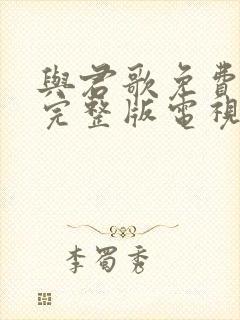 與君歌免費
完整版電視
李蜀秀